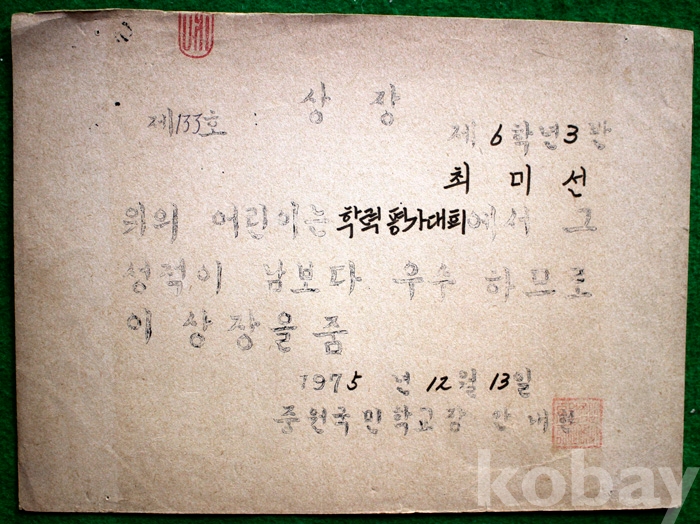 상 장
제133호
제 6학년 3반
최 미 선
위의 어린이는 학력평가대회에서 그
성적이 남보다 우수 하므로
이 상장을 줌
1975 년 12월 13일
중원국민학교장 안
kobay